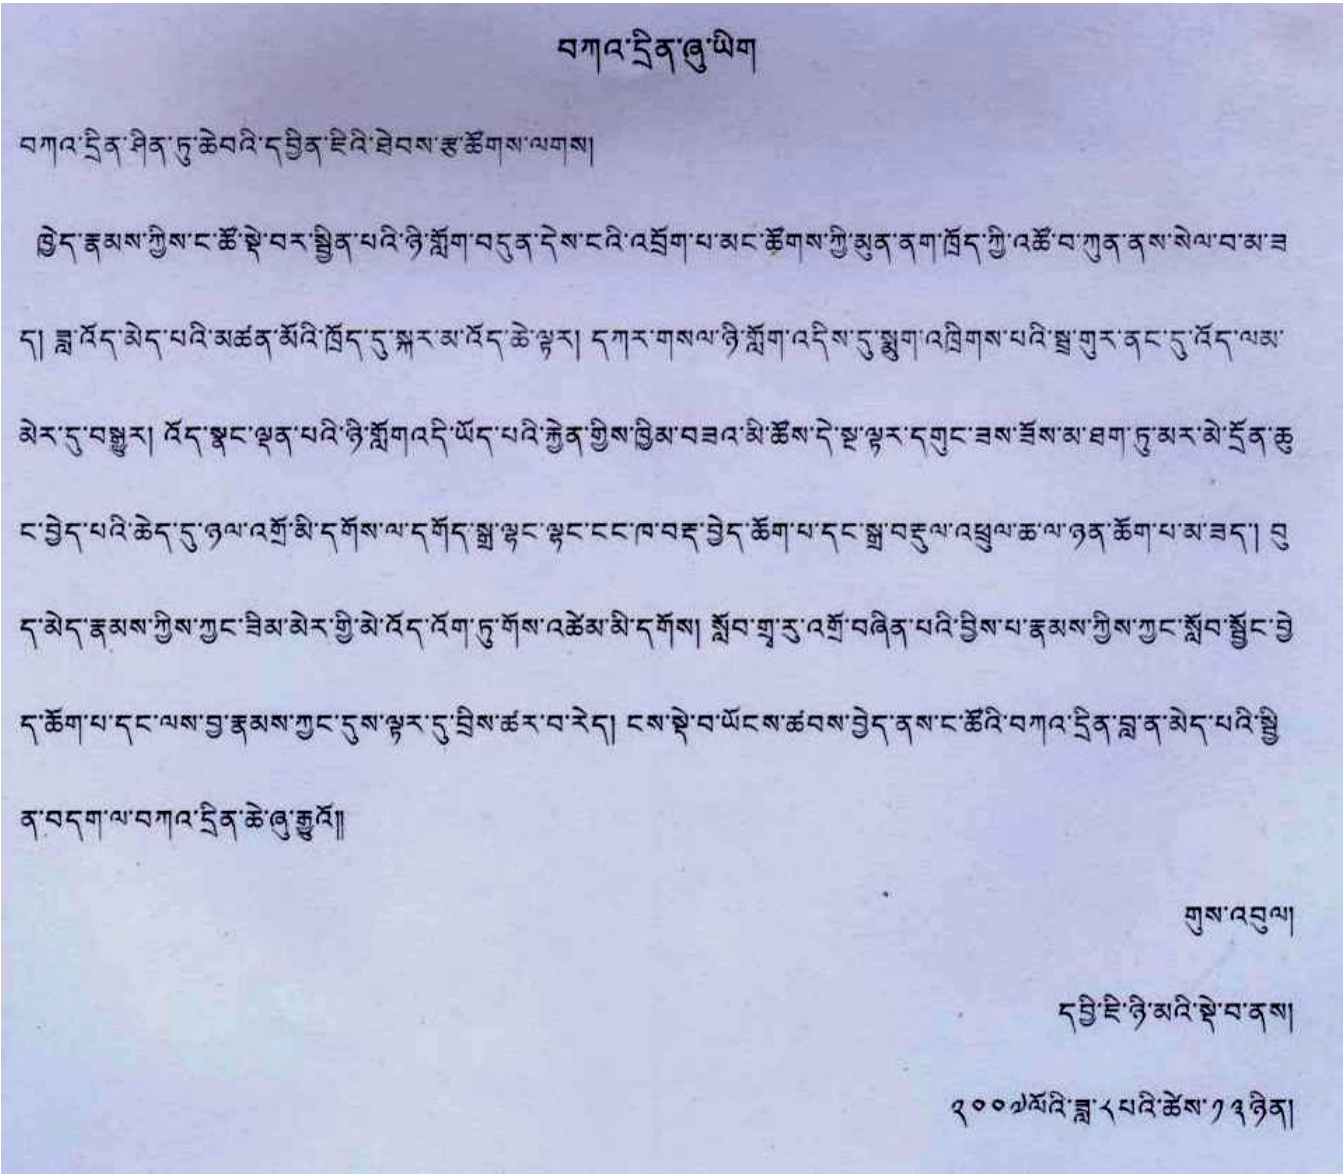 བཀའ་དྲིན་ཞུ་ཡིག
བཀའ་དྲིན་ཤིན་ཏུ་ཆེབའི་དབྱིན་ཇིའི་ཐེབས་རྩ་ཚོགས་ལགས།
ཁྱེད་རྣམས་ཀྱིས་ང་ཚོ་སྡེ་བར་སྦྱིན་པའི་ཉི་གློག་བདུན་དེས་ངའི་འབྲོག་པ་མང་ཚོགས་ཀྱི་མུན་ནག་ཁྲོད་ཀྱི་འཚོ་བ་ཀུན་ནས་སེལ་བ་མ་ཟ
ད། ཟླ་འོད་མེད་པའི་མཚན་མོའི་ཁྲོད་དུ་སྐར་མ་འོད་ཆེ་ལྟར། དཀར་གསལ་ཉི་གློག་འདིས་དུ་སྨུག་འཁྲིགས་པའི་སྦྲ་གུར་ནང་དུ་འོད་ལམ་
མེར་དུ་བསྒྱུར། འོད་སྣང་ལྡན་པའི་ཉི་གློགའདི་ཡོད་པའི་རྐྱེན་གྱིས་ཁྱིམ་བཟའ་མི་ཚོས་དེ་སྔ་ལྟར་དགུང་ཟས་ཟོས་མ་ཐག་ཏུ་མར་མེ་དྲོན་ཆུ
ང་བྱེད་པའི་ཆེད་དུ་ཉལ་འགྲོ་མི་དགོས་ལ་དགོད་སྒྲ་ལྷང་ལྷང་ངང་ཁ་བརྡ་བྱེད་ཆོག་པ་དང་སྒྲ་བརྡུལ་འཕྲུལ་ཆ་ལ་ཉན་ཆོག་པ་མ་ཟད། བུ
ད་མེད་རྣམས་ཀྱིས་ཀྱང་ཟིམ་མེར་གྱི་མེ་འོད་འོག་ཏུ་གོས་འཚེམ་མི་དགོས། སློབ་གྲྭ་རུ་འགྲོ་བཞིན་པའི་བྱིས་པ་རྣམས་ཀྱིས་ཀྱང་སློབ་སྦྱོང་བྱེ
ད་ཆོག་པ་དང་ལས་བྱ་རྣམས་ཀྱང་དུས་ལྟར་དུ་བྲིས་ཚར་བ་རེད། ངས་སྡེ་བ་ཡོངས་ཚབས་བྱེད་ནས་ང་ཚོའི་བཀའ་དྲིན་བླ་ན་མེད་པའི་སྦྱི
ན་བདག་ལ་བཀའ་དྲིན་ཆེ་ཞུ་རྒྱུའོ།།
གུས་འབུལ།
དབྱི་ཇི་ཉི་མའི་སྡེ་བ་ནས།
༢༠༠༧ལོའི་ཟླ་༨པའི་ཚེས་༡༣ཉིན།